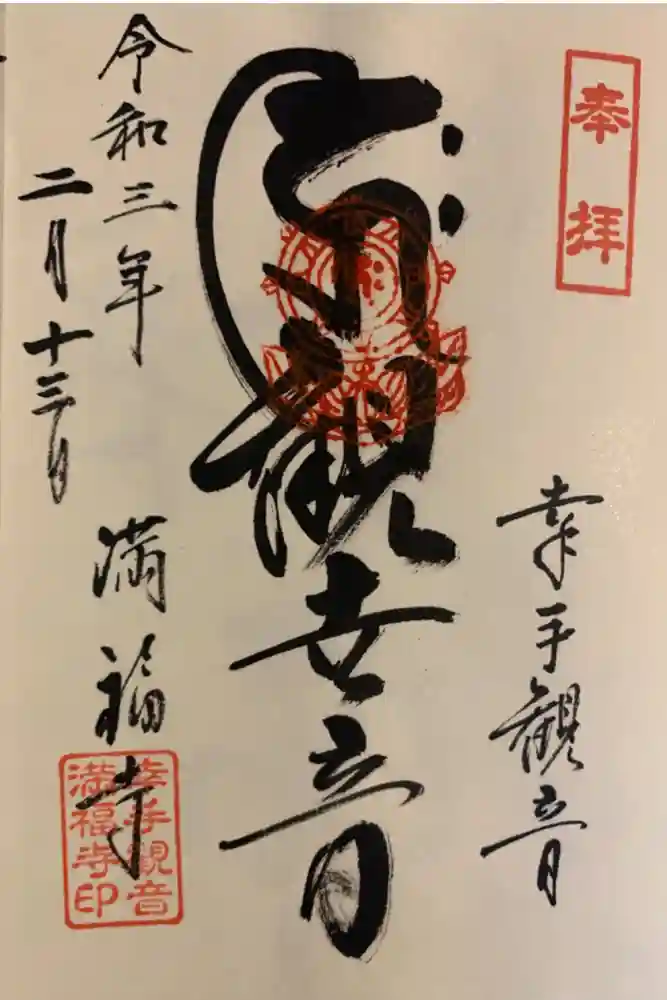 奉拝
幸手観音
観世音
令和三年
二月十三日
満福寺
幸手観音
満福寺印